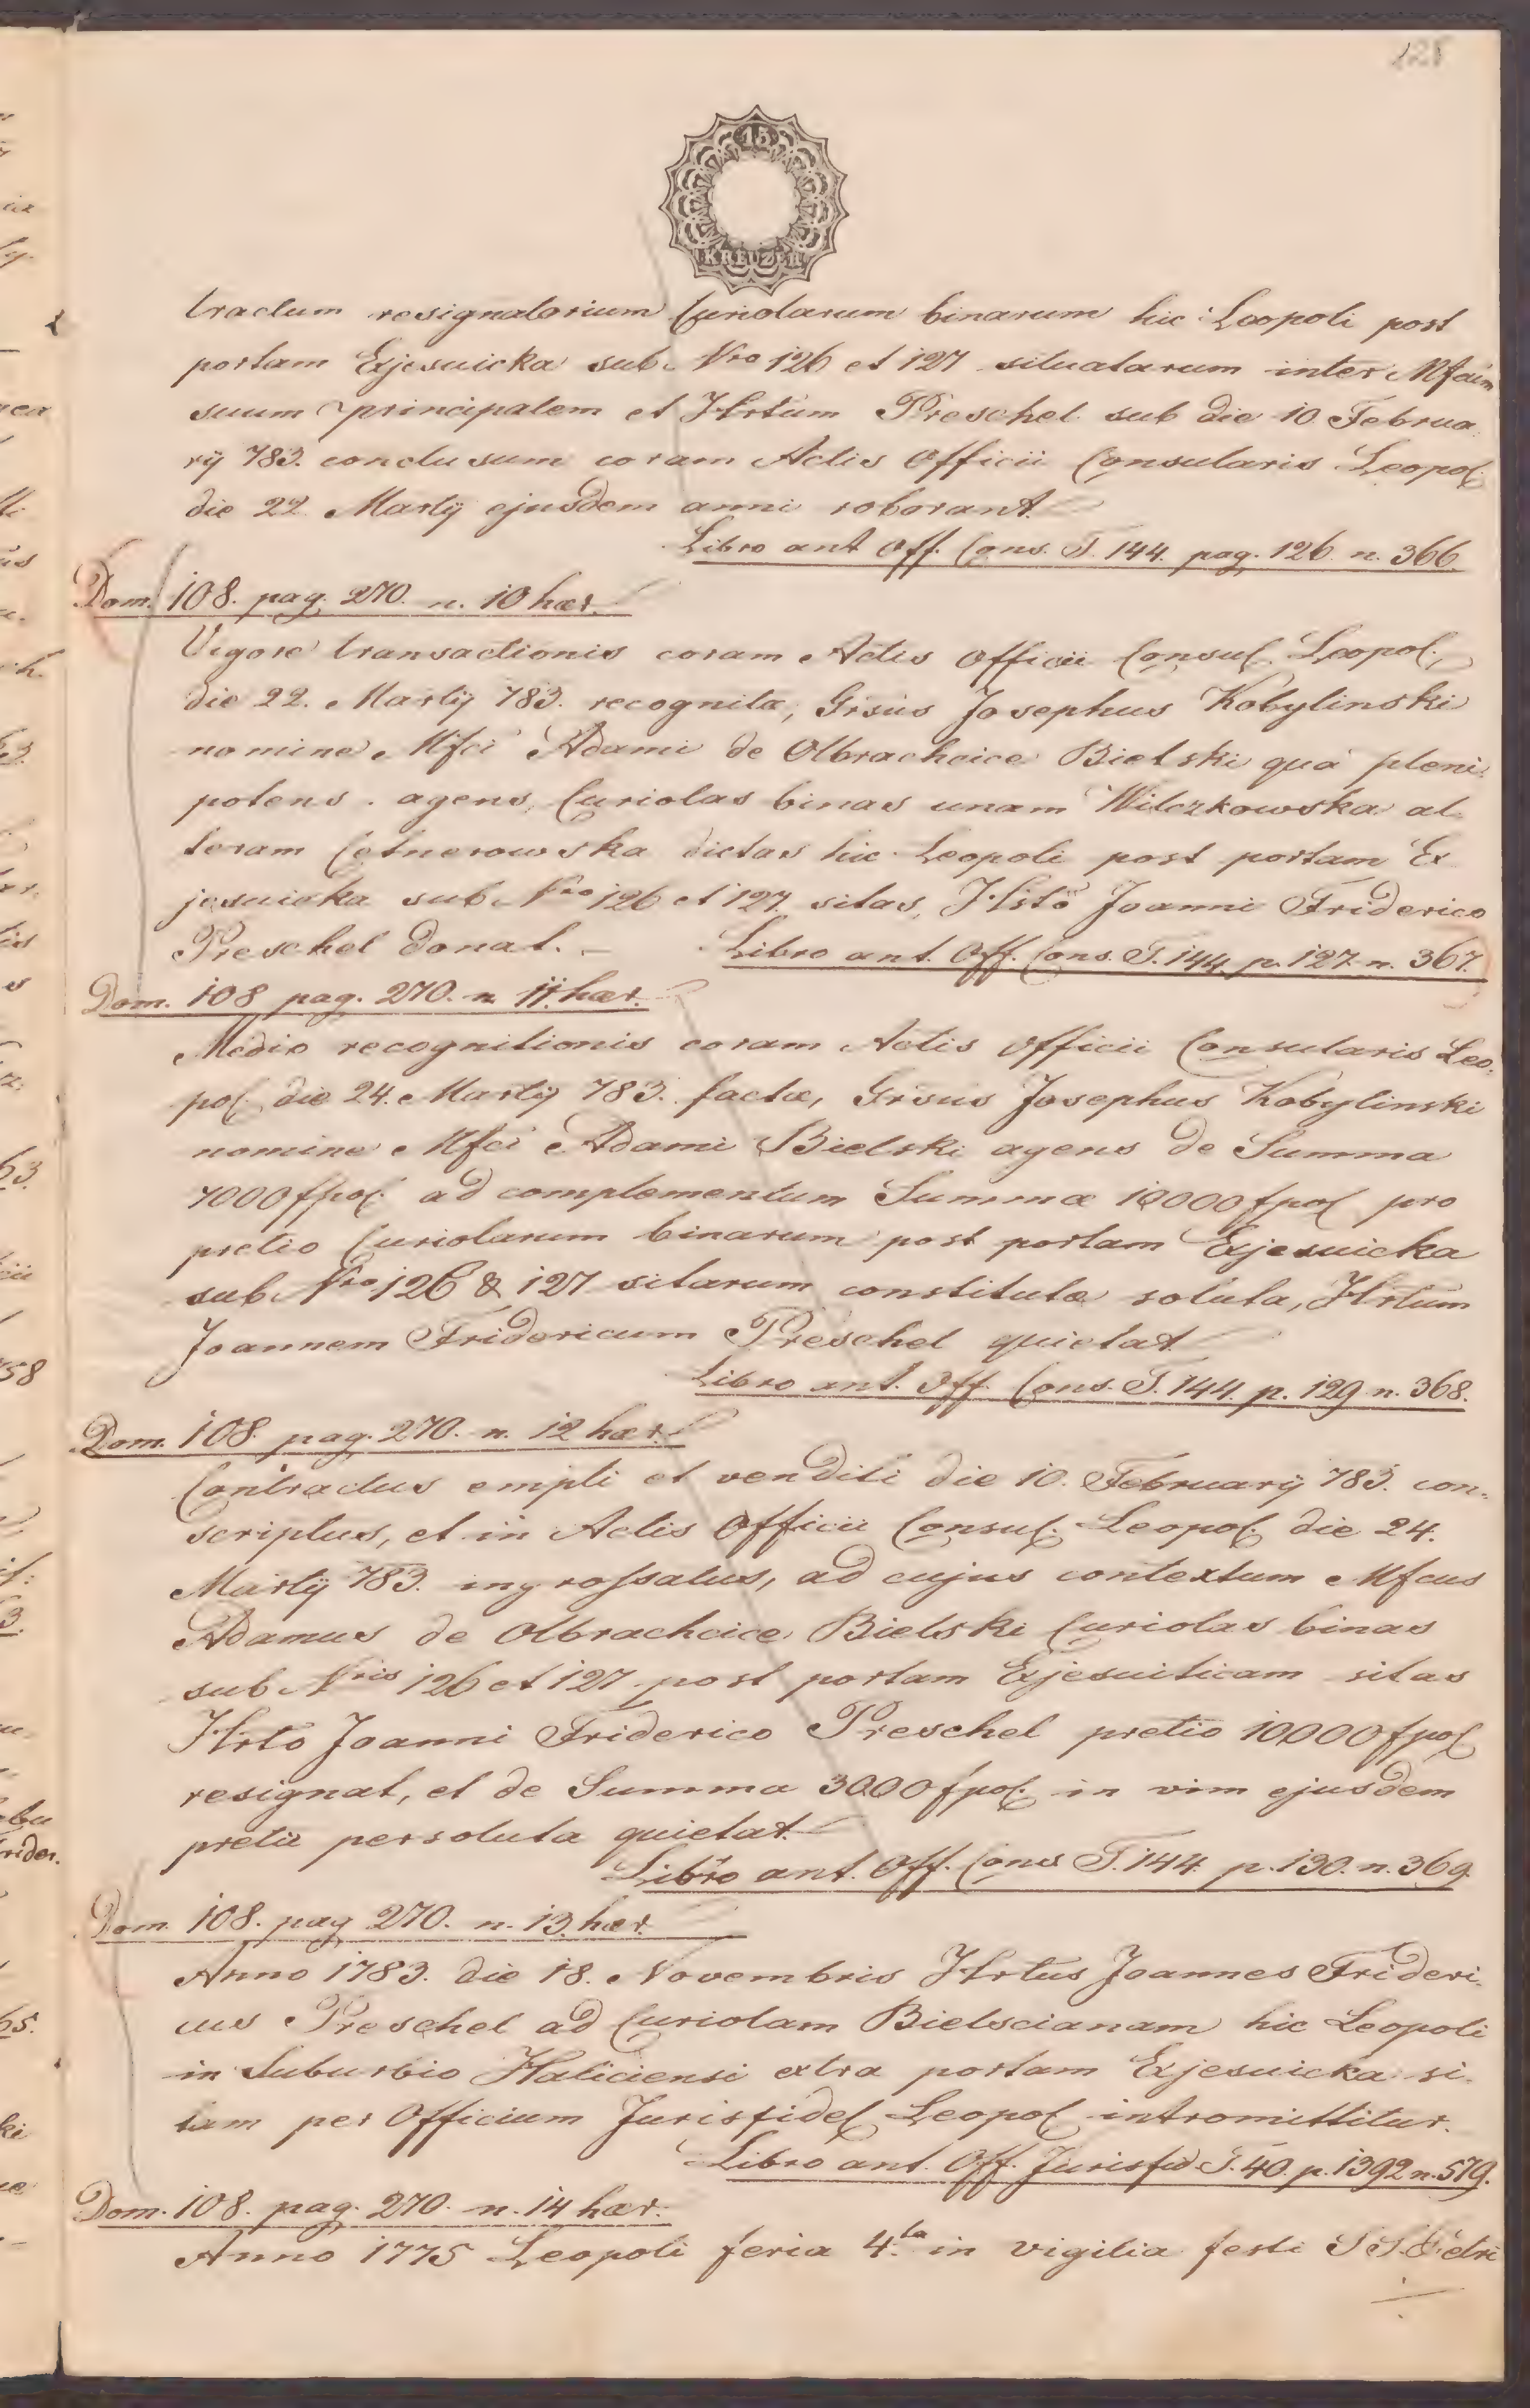 125
15
KREUZER
tractum resignatorium Curiolarum binarum hic Leopoli post
portam Exjesuicka sub Nro 126 et 127 situatarum inter Mfcum
suum principalem et Hrtum Preschel sub die 10 Februa
rÿ 783. conclusum coram Actis Officii Consularis Leopol.
die 22 Martÿ ejusdem anni roborant.
Libro ant Off. Cons. T. 144. pag. 126 n. 366.
Dom. 108. pag. 270. n. 10 hær.
Vigore transactionis coram Actis Officii Consul. Leopol.
die 22. Martÿ 783. recognitæ, Grsus Josephus Kobylinski
nomine Mfci Adami de Olbrachcice Bielski qua pleni
potens agens, Curiolas binas unam Wilczkowska al
teram Cetnerowska dictas hic Leopoli post portam Ex
jesuicka sub Nro 126 et 127. sitas, Hrto Joanni Friderico
Preschel donat. –
Libro ant. Off. Cons. T. 144. p. 127. n. 367.
Dom. 108 pag. 270. n 11. hær.
Medio recognitionis coram Actis Officii Consularis Leo
pol. die 24. Martÿ 783. factæ, Grsus Josephus Kobylinski
nomine Mfci Adami Bielski agens de Summa
7000 fpol. ad complementum Summæ 10000 fpol pro
pretio Curiolarum binarum post portam Exjesuicka
sub Nro 126 & 127 sitarum constitutæ soluta, Hrtum
Joannem Fridericum Preschel quietat.
Libro ant. Off. Cons. T. 144. p. 129 n. 368.
Dom. 108. pag. 270. n. 12 hær.
Contractus empti et venditi die 10. Februarÿ 783. con
scriptus, et in Actis Officii Consul. Leopol. die 24.
Martÿ 783. ingrossatus, ad cujus contextum Mfcus
Adamus de Olbrachcice Bielski Curiolas binas
sub Nris 126 et 127 post portam Exjesuiticam sitas
Hrto Joanni Friderico Preschel pretio 10000 fpol
resignat, et de Summa 3000 fpol. in vim ejusdem
pretii persoluta quietat.
Libro ant. Off. Cons T. 144. p. 130. n. 369.
Dom. 108. pag 270. n. 13. hær.
Anno 1783. die 18. Novembris Hrtus Joannes Frideri
cus Preschel ad Curiolam Bielscianam hic Leopoli
in Suburbio Haliciensi extra portam Exjesuicka si
tam per Officium Jurisfidel Leopol intromittitur.
Libro ant. Off. Jurisfid T. 40. p. 1392 n. 579.
Dom. 108. pag. 270. n. 14 hær.
Anno 1775 Leopoli feria 4.ta in vigilia festi SS. Petri